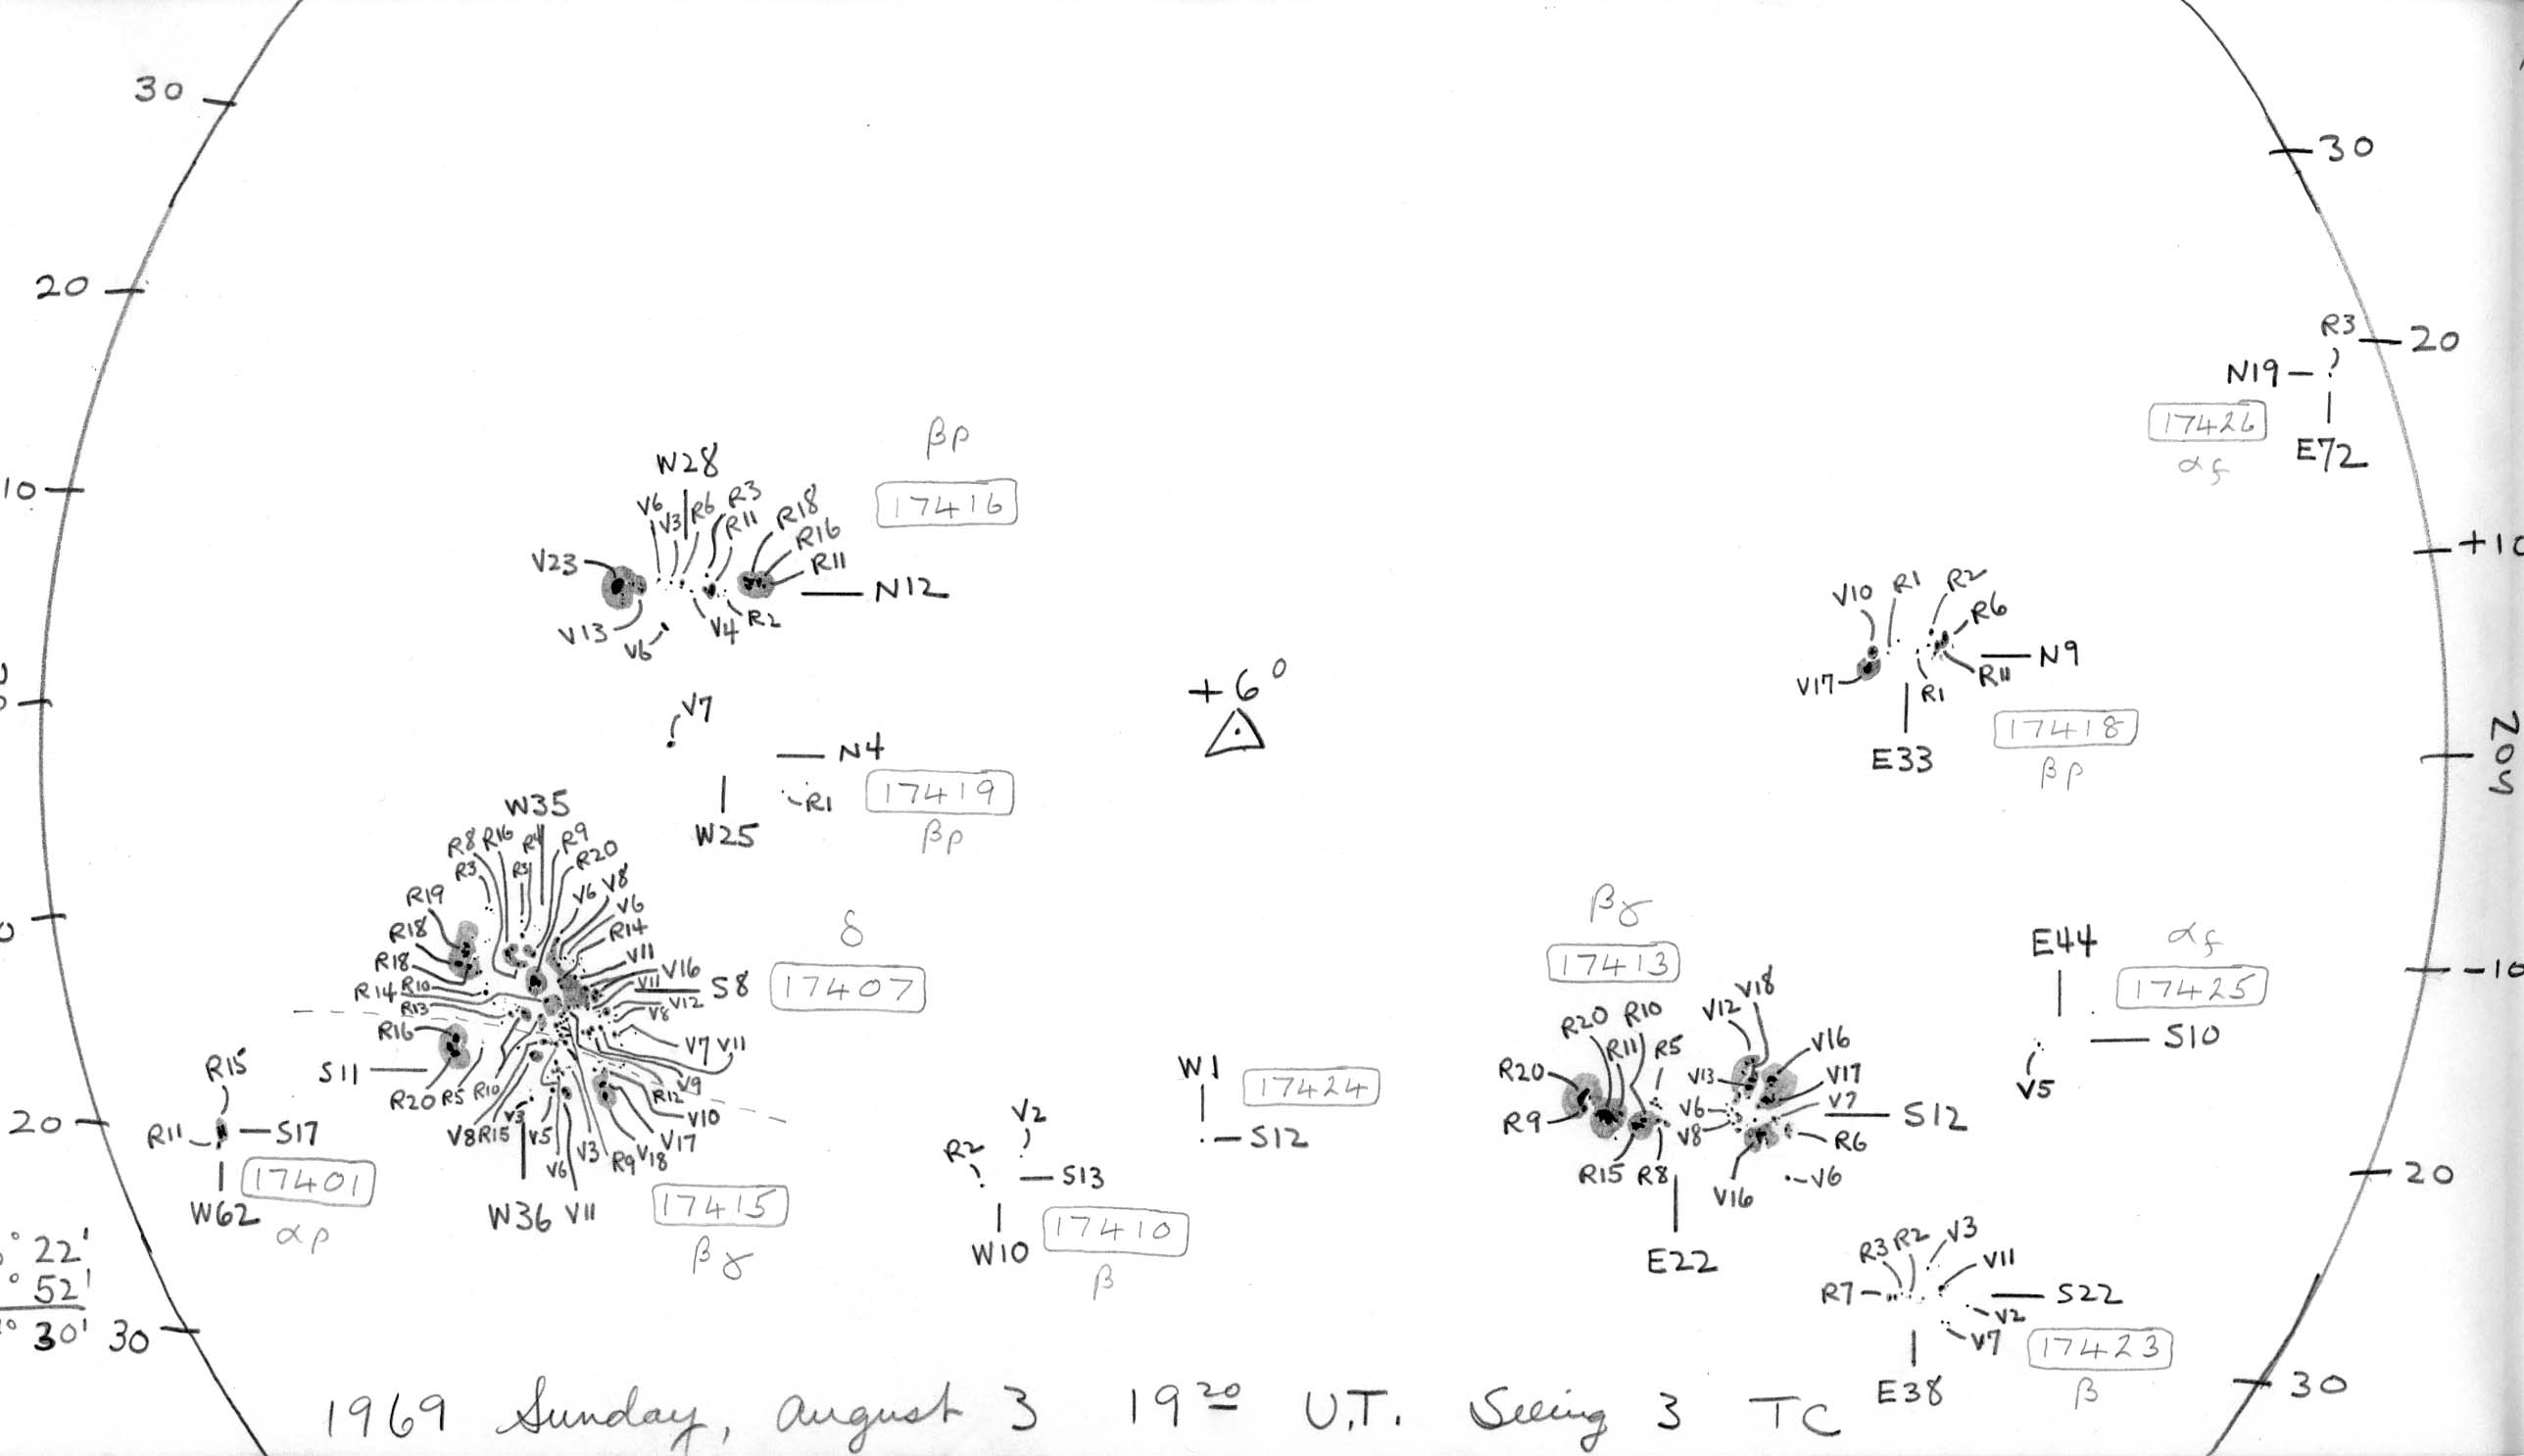 30
30
20
R3
20
N19
17426
E72
αf
βp
W28
10
17416
V6
V3
R6
R3
R11
R18
R16
R11
+10
V23
N12
V13
V6
V4
R2
V10
R1
R2
R6
N9
V17
R1
R11
E33
17418
βp
V7
+6°
N4
17419
R1
W25
βp
W35
R8
R16
R4
R9
R3
R5
R20
R19
V6
V8
V6
R18
R14
δ
V11
R18
V16
S8
17407
R14
R10
V11
V12
R13
V8
R16
V7
V11
S11
V9
R20
R5
R10
R12
V10
V3
V8
R15
V5
V17
V6
V3
R9
V18
W36
V11
17415
βγ
R15
20
R11
S17
17401
W62
αp
W1
17424
V2
S12
R2
S13
W10
17410
β
βγ
17413
E44
αf
-10
17425
V18
V12
R20
R10
S10
R11
R5
V16
R20
V13
V17
V5
V6
V7
R9
V8
S12
R6
R15
R8
V6
20
V16
E22
V3
R3
R2
V11
R7
S22
V2
V7
17423
E38
β
30
22'
52'
30'
30
1969 Sunday, August 3 19²⁰ U.T. Seeing 3 TC